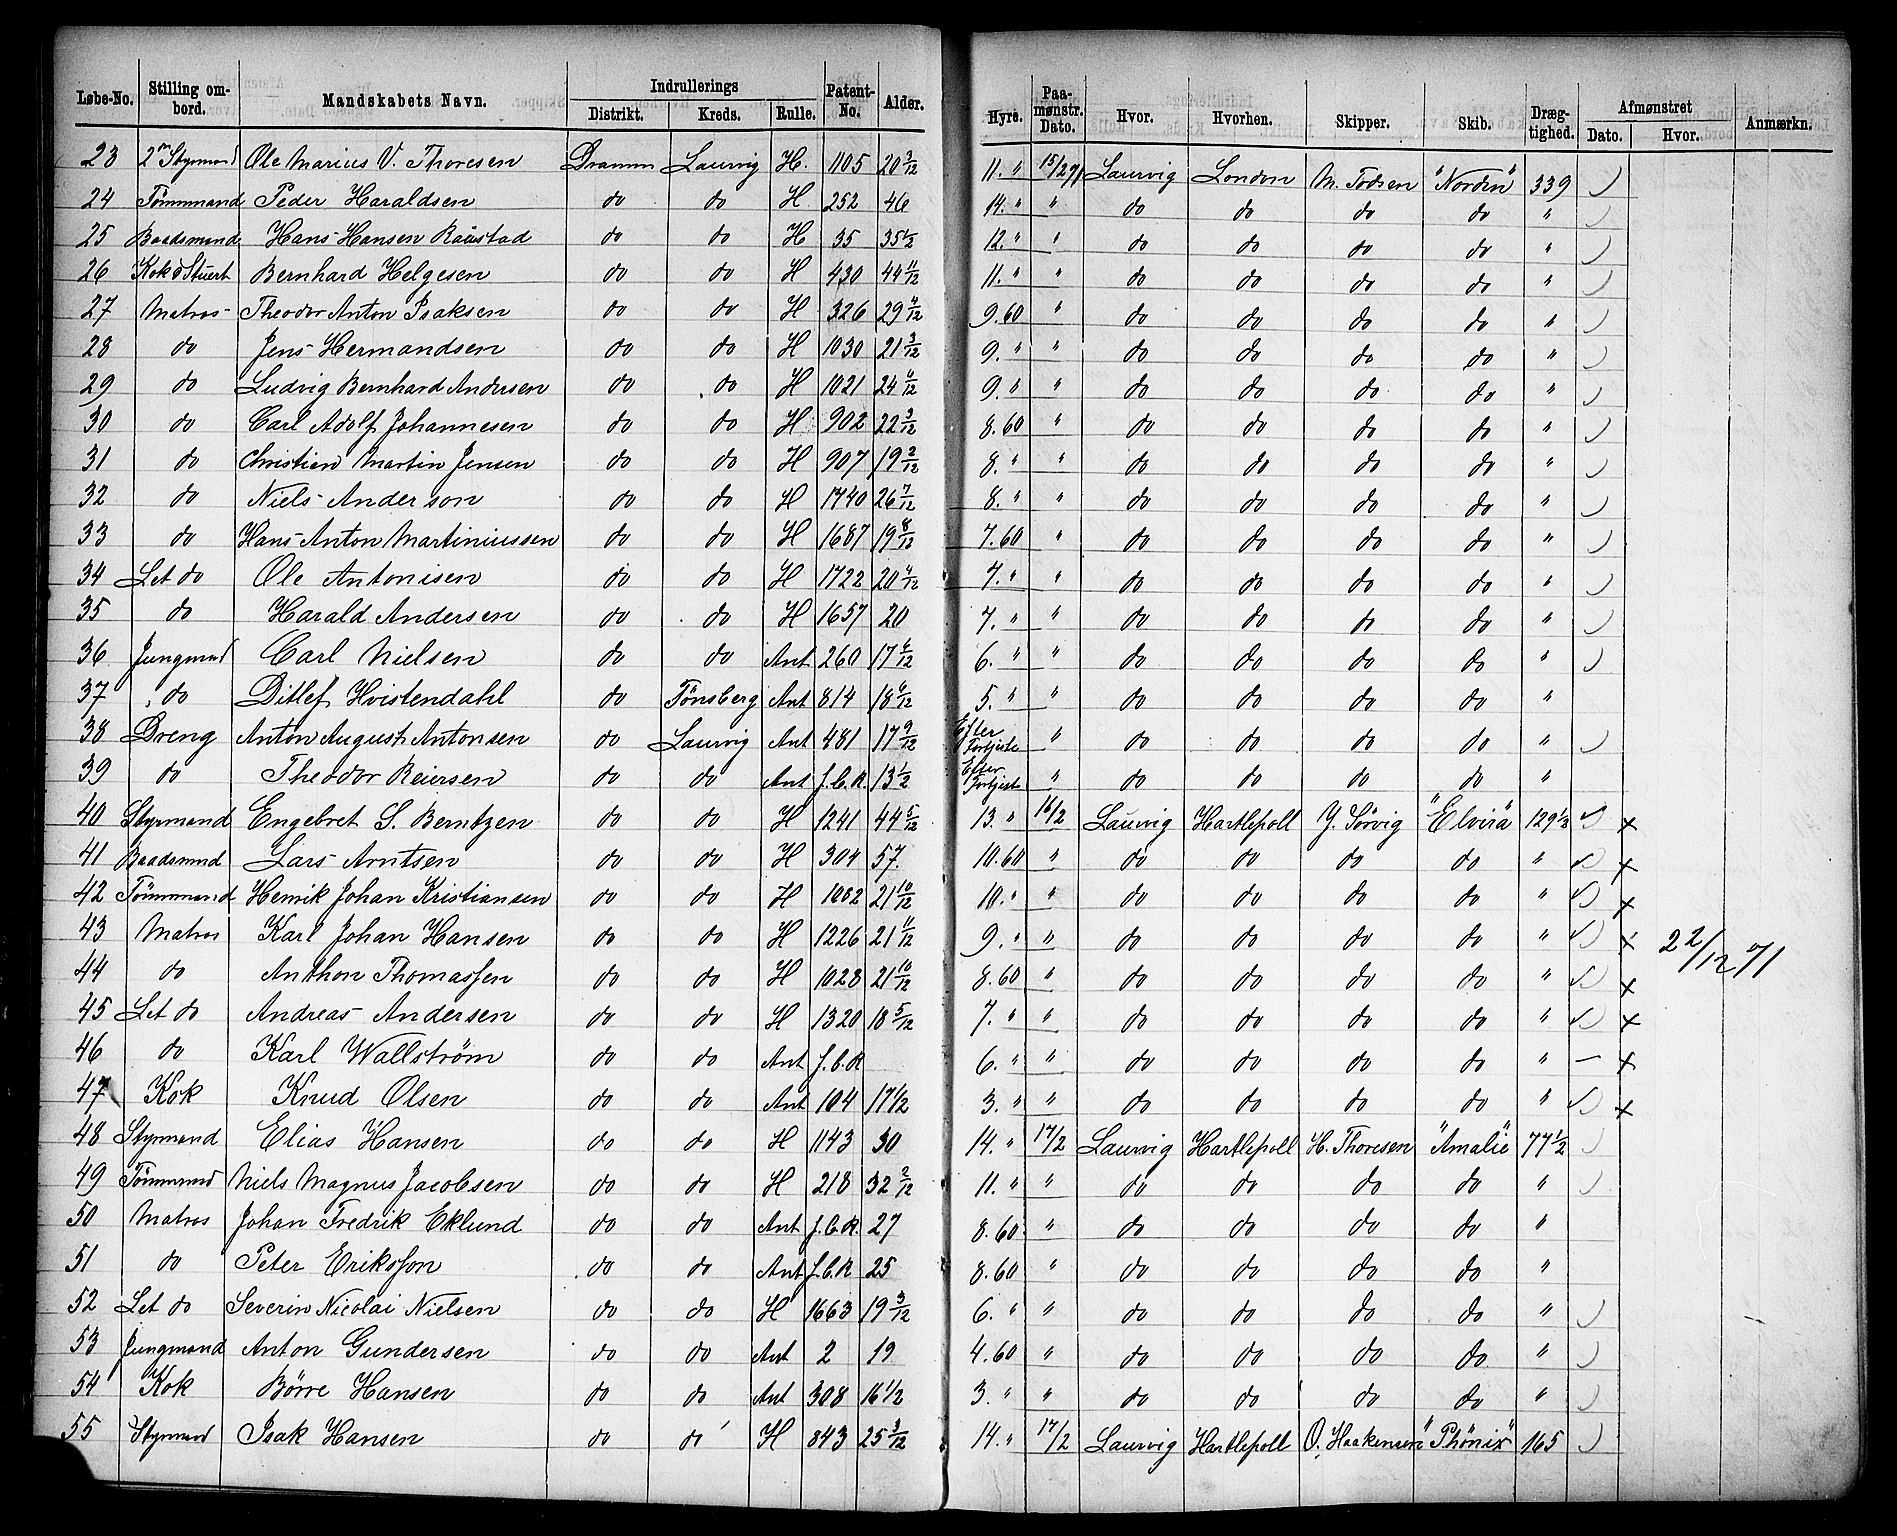 Løbe-No. Stilling ombord. Mandskabets Navn. Indrullerings Distrikt. Kreds. Rulle. Patent-No. Alder. Hyre. Paamønstr. Dato. Hvor. Hvorhen. Skipper. Skib. Drægtighed. Afmønstret Dato. Hvor. Anmærkn.
23 2n Styrmand Ole Marius V. Thoresen Dramm Laurvig H. 1105 20 3/12 11. " 15/2 71 Laurvig London M. Todsen "Norden" 339
24 Tömmermand Peder Haraldsen do do H 252 46 14. " " do do do do "
25 Baadsmand Hans Hansen Raustad do do H 35 35 1/2 12. " " do do do do "
26 Kok o Stuert Bernhard Helgesen do do H 430 44 11/12 11. " " do do do do "
27 Matros Theodor Anton Isaksen do do H 326 29 4/12 9.60 " do do do do "
28 do Jens Hermandsen do do H 1030 21 3/12 9. " " do do do do "
29 do Ludvig Bernhard Andersen do do H 1021 24 11/12 9. " " do do do do "
30 do Carl Adolf Johannesen do do H 902 22 3/12 8.60 " do do do do "
31 do Christian Martin Jensen do do H 907 19 2/12 8. " " do do do do "
32 do Niels Anderson do do H 1740 26 7/12 8. " " do do do do "
33 do Hans Anton Martiniussen do do H 1687 19 8/12 7.60 " do do do do "
34 Let do Ole Antonisen do do H 1722 20 4/12 7. " " do do do do "
35 do Harald Andersen do do H 1657 20 7. " " do do do do "
36 Jungmand Carl Nielsen do do Ant 260 17 6/12 6. " " do do do do "
37 do Ditlef Hvistendahl do Tönsberg Ant 814 18 6/12 5. " " do do do do "
38 Dreng Anton August Antonsen do Laurvig Ant 481 17 9/12 Efter Fortjeste " do do do do "
39 do Theodor Reiersen do do Ant f.C.R. 13 1/2 Efter Fortjest " do do do do "
40 Styrmand Engebret S. Berntzen do do H 1241 44 5/12 13. " 16/2 Laurvig Hartlepoll Y. Sørvig "Elvira" 129 1/2 x
41 Baadsmnd Lars Arntsen do do H 304 57. 10.60 " do do do do " x
42 Tömmermand Henrik Johan Kristiansen do do H 1082 21 10/12 10. " " do do do do " x
43 Matros Karl Johan Hansen do do H 1226 21 11/12 9. " " do do do do " x 22/12 71
44 do Anthon Thomassen do do H 1028 21 10/12 8.60 " do do do do " x
45 Let do Andreas Andersen do do H 1320 18 5/12 7. " " do do do do " x
46 do Karl Wallström do do Ant f.C.R 6. " " do do do do " — x
47 Kok Knud Olsen do do Ant 104 17 1/2 3. " " do do do do " x
48 Styrmand Elias Hansen do do H 1143 30 14. " 17/2 Laurvig Hartlepoll H. Thoresen "Amalie" 77 1/2
49 Tömmermnd Niels Magnus Jacobsen do do H 218 32 2/12 11. " " do do do do "
50 Matros Johan Fredrik Eklund do do Ant f.C.R. 27 8.60 " do do do do "
51 do Peter Eriksson do do Ant f.C.R 25 8.60 " do do do do "
52 Let do Severin Nicolai Nielsen do do H 1663 19 3/12 6. " " do do do do "
53 Jungmand Anton Gundersen do do Ant 2 19 4.60 " do do do do "
54 Kok Börre Hansen do do Ant 308 16 1/2 3. " " do do do do "
55 Styrmand Isak Hansen do do H 843 25 3/12 14. " 17/2 Laurvig Hartlepoll O. Haakensen "Phönix" 165